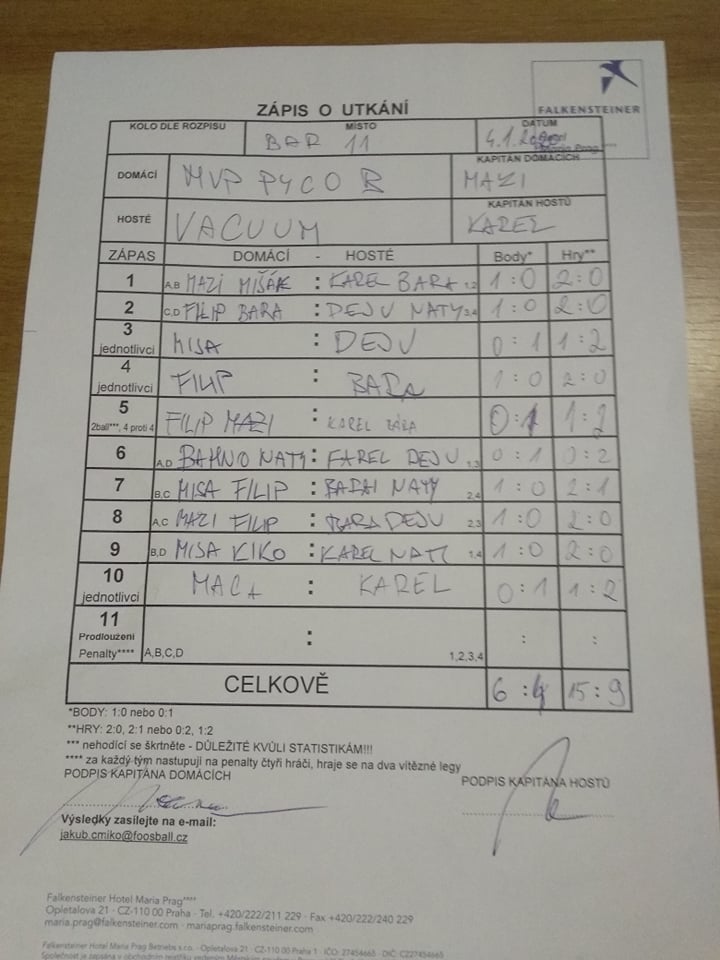 FALKENSTEINER
ZÁPIS O UTKÁNÍ
KOLO DLE ROZPISU MÍSTO DATUM
BAR 11 4.1.
DOMÁCÍ MVP PYCO B KAPITÁN DOMÁCÍCH MAZI
HOSTÉ VACUUM KAPITÁN HOSTŮ KAREL
ZÁPAS DOMÁCÍ - HOSTÉ Body* Hry**
1 A,B MAZI MIŠÁK : KAREL BARA 1,2 1:0 2:0
2 C,D FILIP BARA : DEJU NATY 3,4 1:0 2:0
3 jednotlivci MISA : DEJU 0:1 1:2
4 jednotlivci FILIP : BARA 1:0 2:0
5 2ball***, 4 proti 4 FILIP MAZI : KAREL BÁRA 0:1 1:2
6 A,D NATY : DEJU 1,3 0:1 0:2
7 B,C MISA FILIP : NATY 2,4 1:0 2:1
8 A,C MAZI FILIP : BARA DEJU 2,3 1:0 2:0
9 B,D MISA KIKO : KAREL NATY 1,4 1:0 2:0
10 jednotlivci MACA : KAREL 0:1 1:2
11 Prodloužení : : :
Penalty**** A,B,C,D 1,2,3,4
CELKOVĚ 6:4 15:9
*BODY: 1:0 nebo 0:1
**HRY: 2:0, 2:1 nebo 0:2, 1:2
*** nehodící se škrtněte - DŮLEŽITÉ KVŮLI STATISTIKÁM!!!
**** za každý tým nastupují na penalty čtyři hráči, hraje se na dva vítězné legy
PODPIS KAPITÁNA DOMÁCÍCH PODPIS KAPITÁNA HOSTŮ
Výsledky zasílejte na e-mail:
jakub.cmiko@foosball.cz
Falkensteiner Hotel Maria Prag****
Opletalova 21 · CZ-110 00 Praha · Tel. +420/222/211 229 · Fax +420/222/240 229
maria.prag@falkensteiner.com · mariaprag.falkensteiner.com
Falkensteiner Hotel Maria Prag Betriebs s.r.o. · Opletalova 21 · CZ-110 00 Praha 1 · IČO: 27454665 · DIČ: CZ27454665